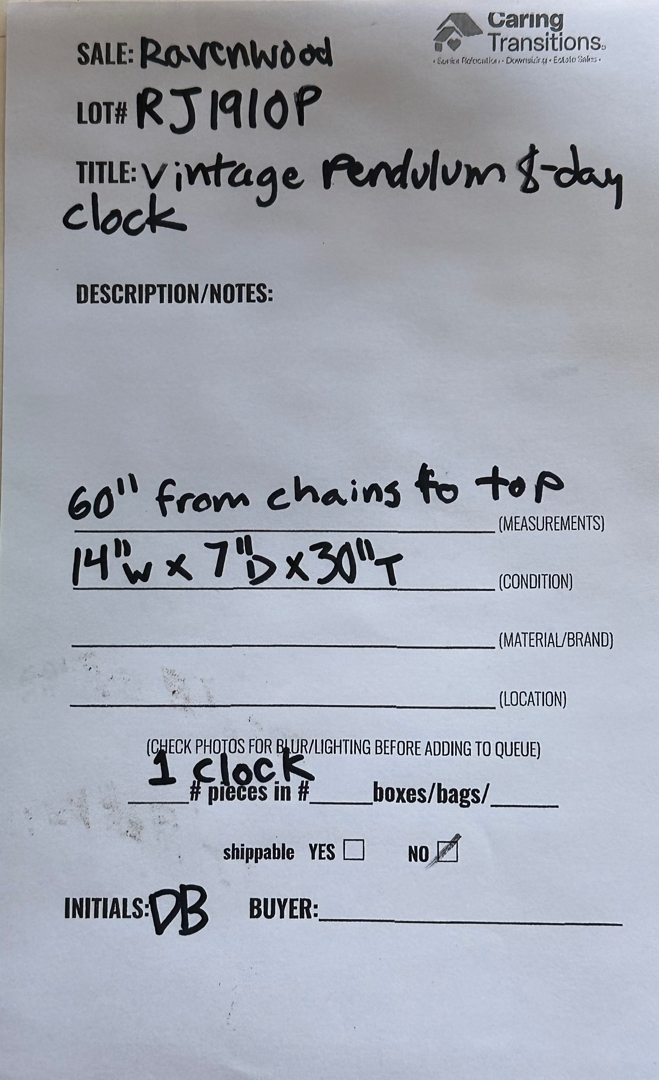 Caring
Transitions
• Senior Relocation • Downsizing • Estate Sales •
SALE: Ravenwood
LOT# RJ1910P
TITLE: Vintage Pendulum 8-day
clock
DESCRIPTION/NOTES:
60" from chains to top
(MEASUREMENTS)
14"W x 7"D x 30"T
(CONDITION)
(MATERIAL/BRAND)
(LOCATION)
(CHECK PHOTOS FOR BLUR/LIGHTING BEFORE ADDING TO QUEUE)
1 clock
# pieces in # boxes/bags/
shippable YES NO
INITIALS: DB BUYER: